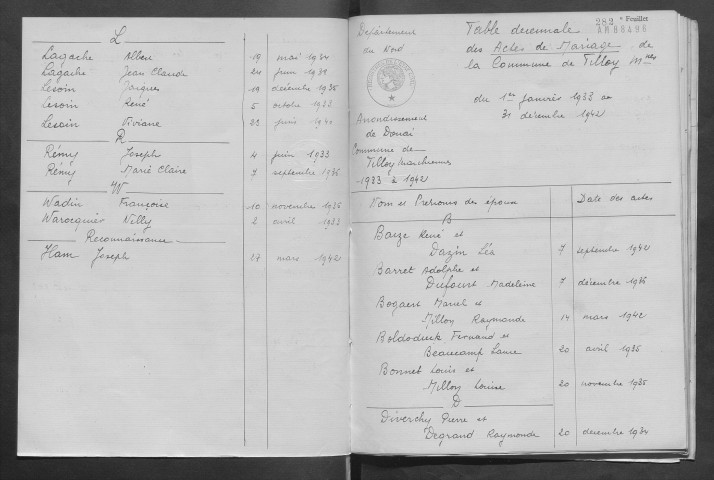 L
Lagache Albert 19 mai 1934
Lagache Jean Claude 24 juin 1931
Lesoin Jacques 19 décembre 1935
Lesoin René 5 octobre 1933
Lesoin Viviane 22 juin 1941
R
Rémy Joseph 4 juin 1933
Rémy Marie Claire 7 septembre 1936
W
Wadin Françoise 10 novembre 1936
Warocquier Nelly 2 avril 1933
Reconnaissance
Ham Joseph 27 mars 1942
282 e Feuillet
Département
du Nord
Arrondissement
de Douai
Commune de
Tilloy Marchiennes
1933 à 1942
Table décennale
des Actes de Mariage de
la Commune de Tilloy Mnes
du 1er janvier 1933 au
31 décembre 1942
Nom et Prénoms des époux Date des actes
B
Baize René et
Dazin Léa 7 septembre 1942
Barret Adolphe et
Dufourt Madeleine 7 décembre 1936
Bogaert Marcel et
Milloy Raymonde 14 mars 1942
Boldoduck Fernand et
Beaucamp Laure 20 avril 1935
Bonnet Louis et
Milloy Louise 20 novembre 1935
D
Diverchy Pierre et
Degrand Raymonde 20 décembre 1934